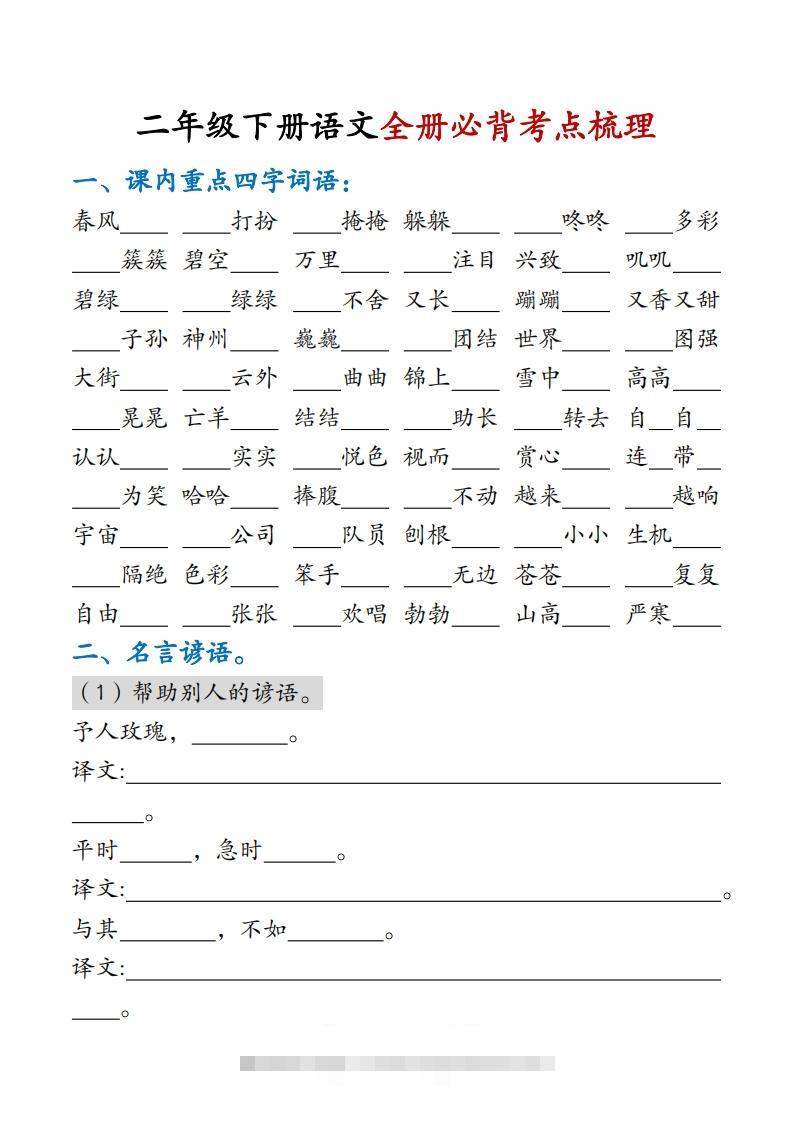 二年级下册语文全册必背考点梳理
一、课内重点四字词语：
春风____ ____打扮 ____掩掩 躲躲____ ____咚咚 ____多彩
____簇簇 碧空____ 万里____ ____注目 兴致____ 叽叽____
碧绿____ ____绿绿 ____不舍 又长____ 蹦蹦____ 又香又甜
____子孙 神州____ 巍巍____ ____团结 世界____ ____图强
大街____ ____云外 ____曲曲 锦上____ 雪中____ 高高____
____晃晃 亡羊____ 结结____ ____助长 ____转去 自__自__
认认____ ____实实 ____悦色 视而____ 赏心____ 连__带__
____为笑 哈哈____ 捧腹____ ____不动 越来____ ____越响
宇宙____ ____公司 ____队员 刨根____ ____小小 生机____
____隔绝 色彩____ 笨手____ ____无边 苍苍____ ____复复
自由____ ____张张 ____欢唱 勃勃____ 山高____ 严寒____
二、名言谚语。
（1）帮助别人的谚语。
予人玫瑰，________。
译文:__________________________________________________
______。
平时______，急时______。
译文:__________________________________________________。
与其________，不如________。
译文:__________________________________________________
____。